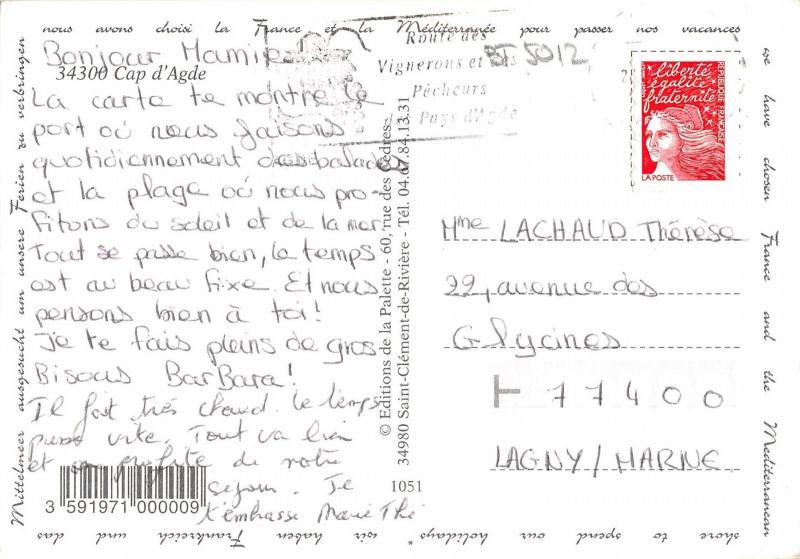 nous avons choisi la France et la Méditerranée pour passer nos vacances
we have chosen France and the Mediterranean
shore to spend our holidays *
wir haben Frankreich und das
Mittelmeer ausgesucht um unsere Ferien zu verbringen
Bonjour Mamie!
34300 Cap d'Agde
La carte te montre le
port où nous faisons
quotidiennement des balades
et la plage où nous pro-
fitons du soleil et de la mer.
Tout se passe bien, le temps
est au beau fixe. Et nous
pensons bien à toi!
Je te fais pleins de gros
Bisous BarBara!
Il fait très chaud. Le temps
passe vite. Tout va bien
et on profite de notre
séjour. Je
t'embrasse Marie Thé
3 591971 000009
1051
© Editions de la Palette - 60, rue des Cèdres
34980 Saint-Clément-de-Rivière - Tél. 04.67.84.13.31
Route des
Vignerons et des
Pêcheurs
Pays d'Agde
BT 5012
liberté
égalité
fraternité
RÉPUBLIQUE FRANÇAISE
LA POSTE
Mme LACHAUD Thérèse
22, avenue des
Glycines
77400
LAGNY/MARNE